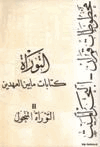 التوراة
كتابات مابين العهدين
II
التوراة المنحول
مخطوطات قمران - البحر الميت